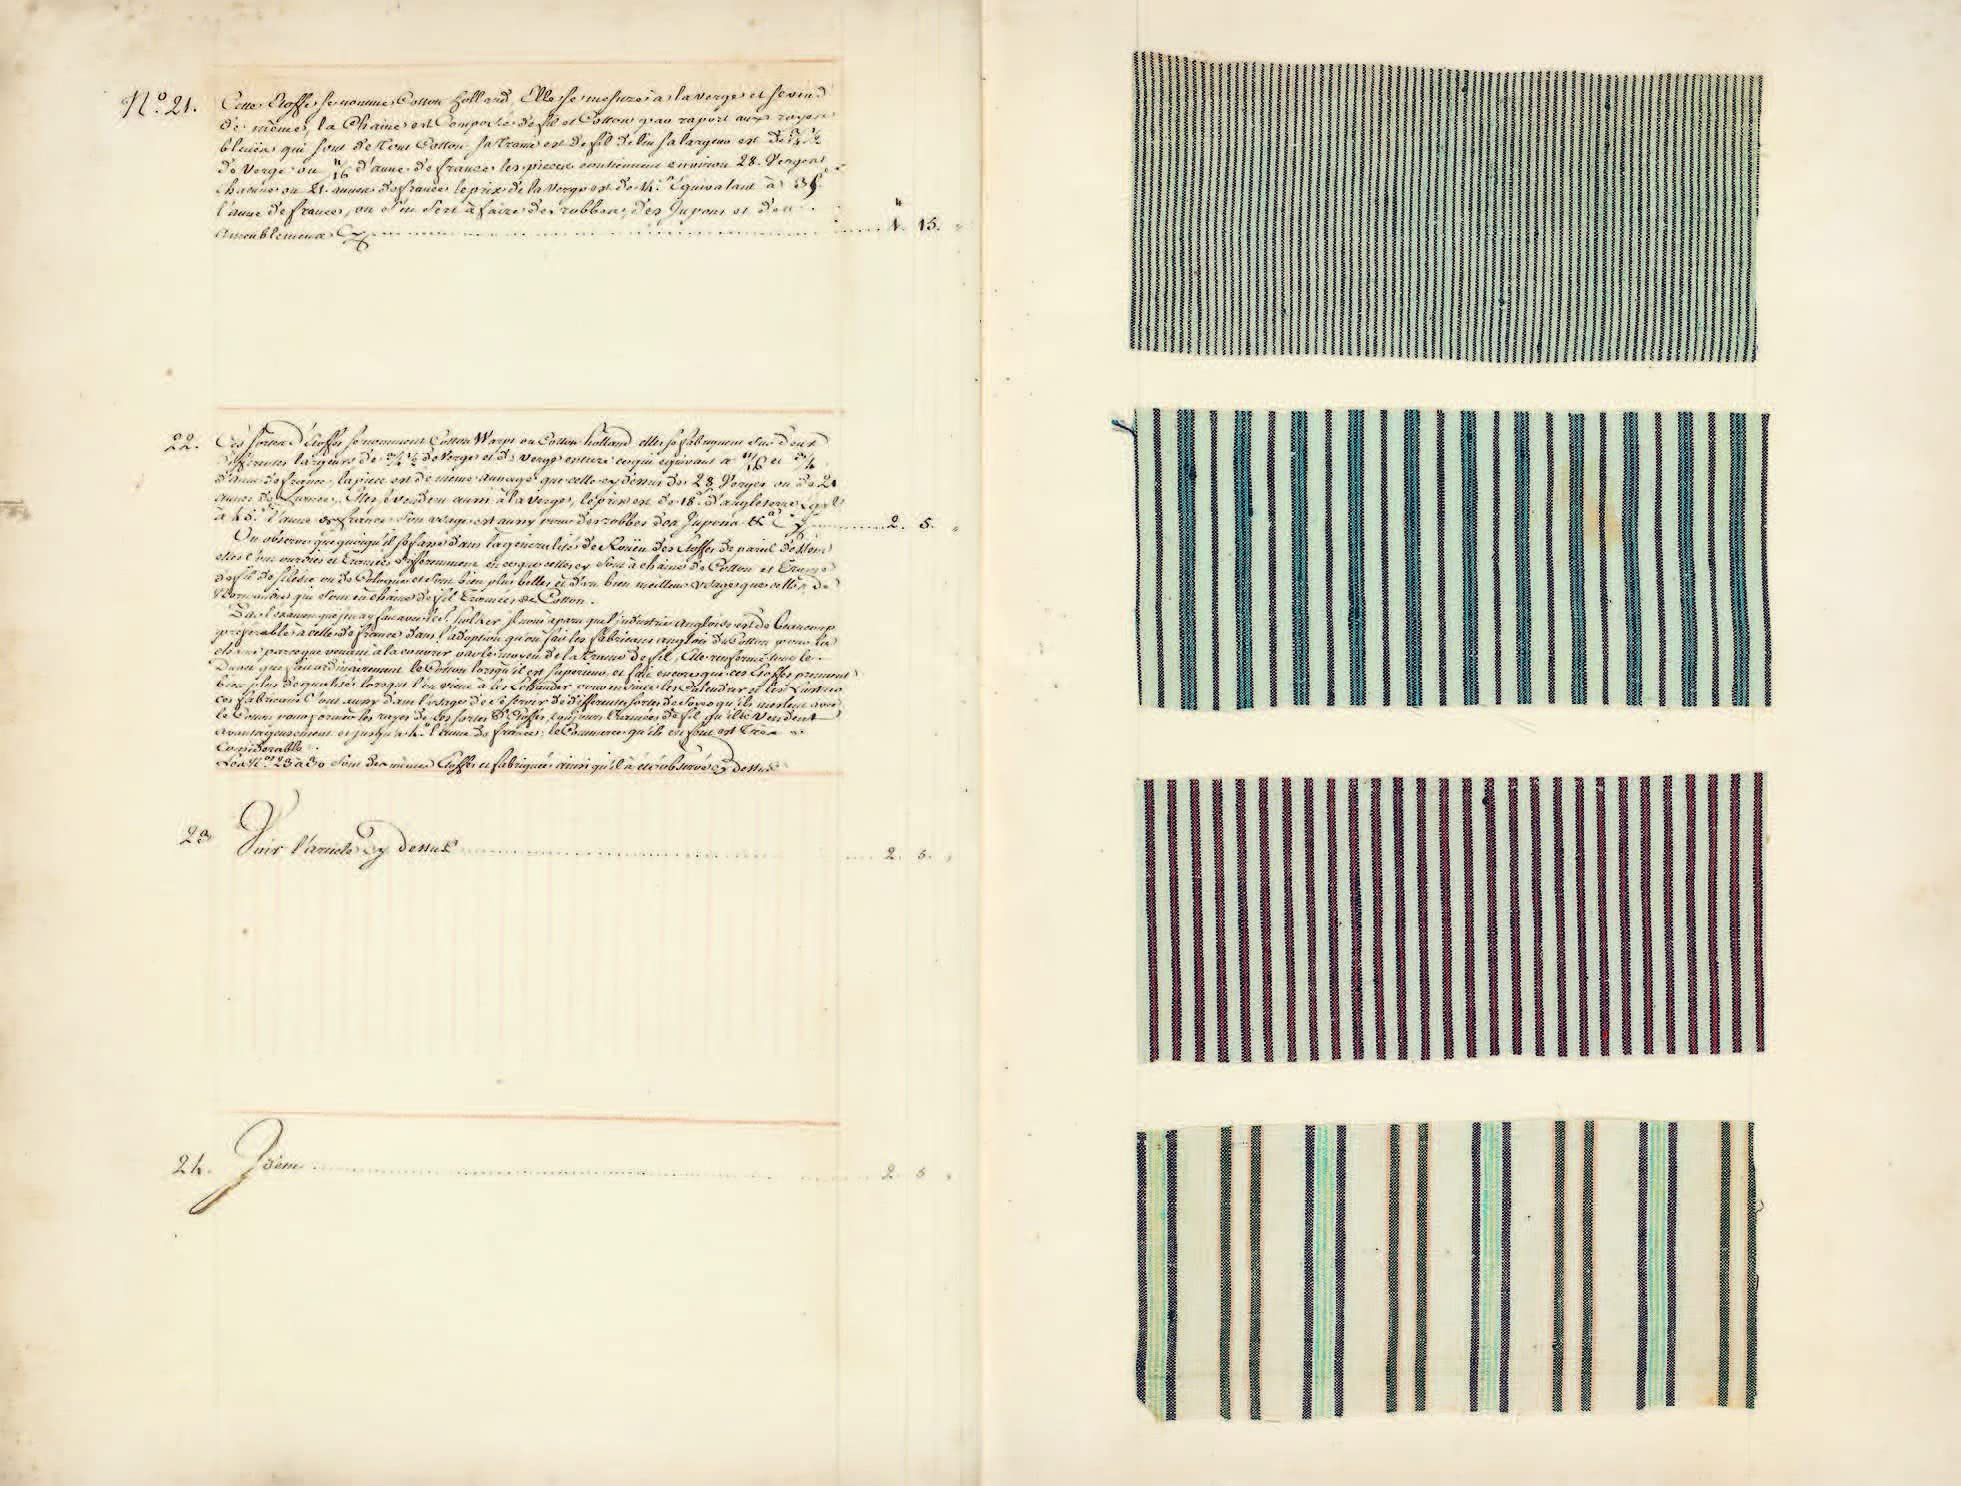 N.º 21. Cette Etoffe se nomme Cotton holland, Elle se mesure à la verge et se vend
de même, la Chaine est Composée de fil et Cotton quau raport aux rayes
bleües qui sont de tout Cotton. sa trame est de fil de lin sa largeur est de 3/4 ½
de Verge ou 11/16 d'aune de france les pieces contiennent environ 28. Verges
chacune ou 21. aunes de france le prix de la verge est de 14.d Equivalant à 35.s
l'aune de france, on s'en sert à faire des robbes, des Jupons et des
Ameublemens Cy 1. 15. "
22. Ces sortes d'étoffes se nomment Cotton Warps ou Cotton holland elles se fabriquent sur deux
differentes largeurs de 3/4 ½ de Verge et de verge entiere ce qui equivaut a 11/16 et 3/4
d'aune de france, la piece est de même aunage que celle cy dessus de 28 Verges ou de 21
aunes de france, Elles se vendent aussi à la verge, le prix est de 18.d d'angleterre
à 45.s l'aune de france. Son usage est aussy pour des robbes des Jupons &a Cy 2. 5. "
On observe que quoiqu'il se fasse dans la généralité de Roüen des Etoffes de pareil dessein
elles sont ourdies et tramées differemment en ce que celles cy sont à chaine de Cotton et trame
de fil de silesie ou de Cologne et sont bien plus belles et d'un bien meilleur usage que celles de
Normandie qui sont en chaine de fil tramées de Cotton.
Par l'examen que j'en ay fait avec le S.r holker il nous a paru que l'industrie angloise est de beaucoup
preferable a celle de france dans l'adoption qu'on fait les fabricans anglois du Cotton pour la
chaine parceque venant a la couvrir par le moyen de la trame de fil, Elle renferme tout le
Duvet que fait ordinairement le Cotton lorsqu'il est superieur, et fait encore que ces Etoffes prennent
bien plus de qualité lorsque l'on vient à les Calandrer
ces fabricans sont aussy dans l'usage de se servir de differentes sortes de soye qu'ils meslent avec
le Cotton pour former les rayes de ces sortes d'Etoffes, toujours tramées de fil qu'ils Vendent
avantageusement et jusqu'à l'aune de france; le Commerce qu'ils en font est très
Considerable.
Les N.os 23 à 30 sont des mêmes Etoffes et fabriquées ainsi qu'il a été observé cy dessus
23 Voir l'article Cy dessus 2. 5. "
24. Idem 2 5 "